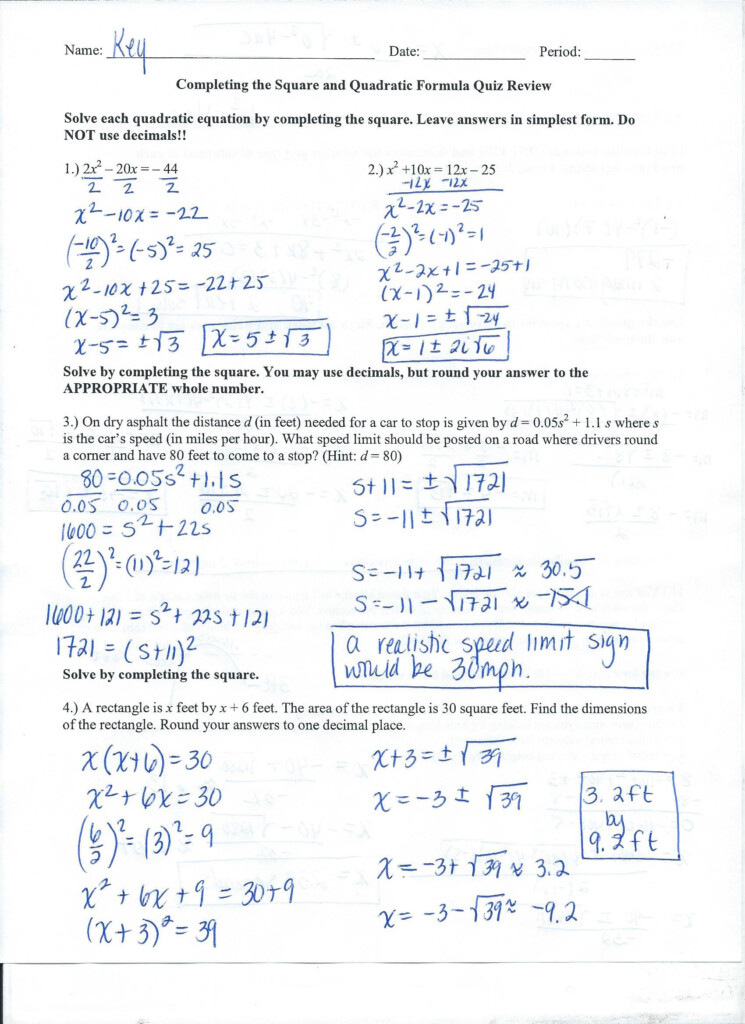 Name: Key Date: Period:
Completing the Square and Quadratic Formula Quiz Review
Solve each quadratic equation by completing the square. Leave answers in simplest form. Do
NOT use decimals!!
1.) 2x² – 20x = – 44
2 2 2
x²-10x = -22
(-10/2)²=(-5)²= 25
x²-10x+25 = -22+25
(x-5)²= 3
x-5= ±√3 x=5±√3
2.) x² +10x = 12x – 25
-12x -12x
x²-2x=-25
(-2/2)²=(-1)²=1
x²-2x+1=-25+1
(x-1)²=-24
x-1=±√-24
x=1±2i√6
Solve by completing the square. You may use decimals, but round your answer to the
APPROPRIATE whole number.
3.) On dry asphalt the distance d (in feet) needed for a car to stop is given by d = 0.05s² + 1.1 s where s
is the car's speed (in miles per hour). What speed limit should be posted on a road where drivers round
a corner and have 80 feet to come to a stop? (Hint: d = 80)
80=0.05s²+1.1s
0.05 0.05 0.05
1600 = s²+22s
(22/2)²=(11)²=121
1600+121 = s²+22s+121
1721 = (s+11)²
s+11=±√1721
s=-11±√1721
s=-11+√1721 ≈ 30.5
s=-11-√1721 ≈
a realistic speed limit sign
would be 30mph.
Solve by completing the square.
4.) A rectangle is x feet by x + 6 feet. The area of the rectangle is 30 square feet. Find the dimensions
of the rectangle. Round your answers to one decimal place.
x(x+6)=30
x²+6x=30
(6/2)²=(3)²=9
x²+6x+9=30+9
(x+3)²=39
x+3=±√39
x=-3±√39
x=-3+√39 ≈ 3.2
x=-3-√39 ≈ -9.2
3.2ft
by
9.2ft